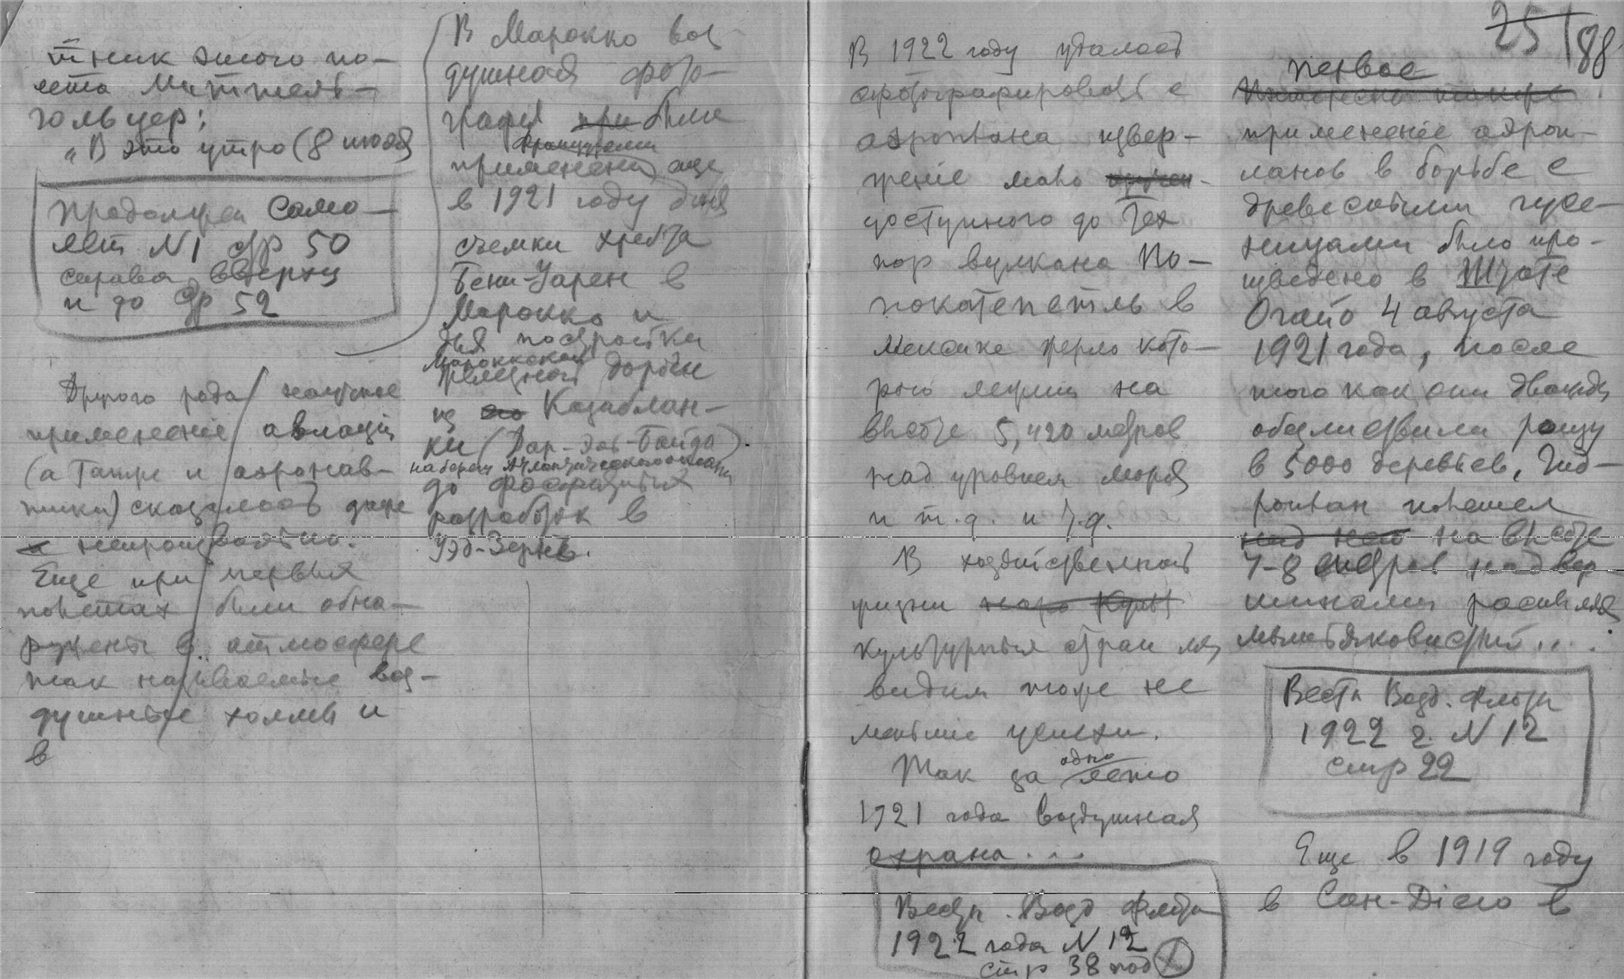 тник этого по-
лета Миттель-
гольцер:
"В это утро (8 июля
Продолжен Само-
лет N1 стр 50
справа вверху
и до стр 52
Другого рода научное
применение авиации
(а также и аэронав-
тики) сказалось даже
и непроизвольно.
Еще при первых
полетах были обна-
ружены в атмосфере
так называемые воз-
душные холмы и
в
В Марокко воз-
душная фото-
графия при была
французами
применена еще
в 1921 году для
съемки хребта
Бени-Уарен в
Марокко и
для постройки
Марокканской
железной дороги
из Казаблан-
ки (Дар-эль-Байда)
на берегу Атлантического океана
до фосфатных
разработок в
Уэд-Зерив.
25 188
В 1922 году удалось
сфотографировать с
аэроплана извер-
жение мало
доступного до тех
пор вулкана По-
покатепетль в
Мексике жерло кото-
рого лежит на
высоте 5,420 метров
над уровнем моря
и т.д. и т.д.
В хозяйственной
жизни
культурных стран мы
видим тоже не
меньшие успехи.
Так за одно лето
1921 года воздушная
охрана...
Вестн. Возд Флота
1922 года N 12
стр 38 под
первое
Интересно также
применение аэроп-
ланов в борьбе с
древесными гусе-
ницами было про-
изведено в Штате
Огайо 4 августа
1921 года, после
того как они дважды
обезлиствили рощу
в 5000 деревьев. Гид-
роплан полетел
над него на высоте
7-8 метров над вер-
шинами распыляя
мышьяковистый....
Вестн Возд. Флота
1922 г. N 12
стр 22
Еще в 1919 году
в Сан-Диего в